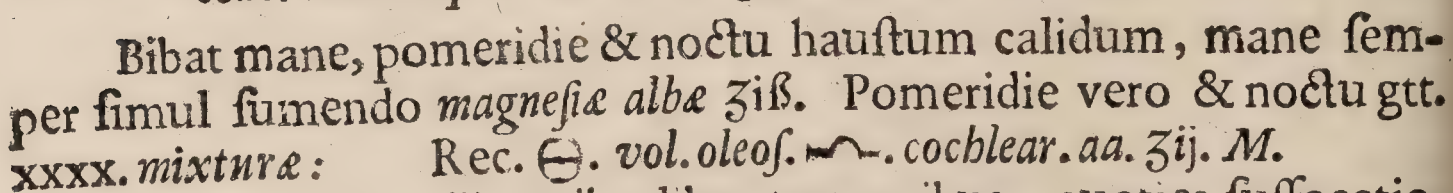 Bibat mane, pomeridie & noctu hauſtum calidum, mane ſem-
per ſimul ſumendo magneſiæ albæ ʒiß. Pomeridie vero & noctu gtt.
xxxx. mixturæ: Rec. 🜔. vol. oleoſ. . cochlear. aa. ʒij. M.